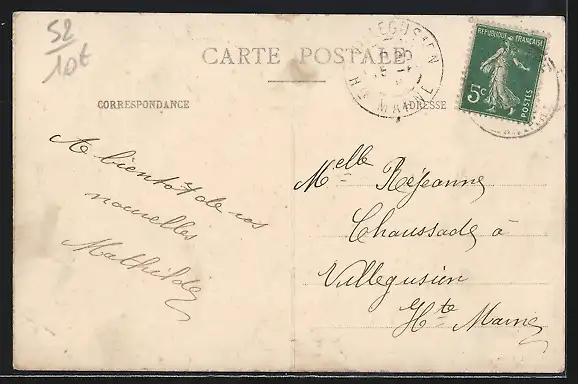 52
10t
CARTE POSTALE
CORRESPONDANCE
ADRESSE
VILLEGUSIEN
Hte MARNE
REPUBLIQUE FRANÇAISE
5c
POSTES
A bientôt de vos
nouvelles
Mathilde
Melle Réjeanne
Chaussade à
Villegusien
Hte Marne